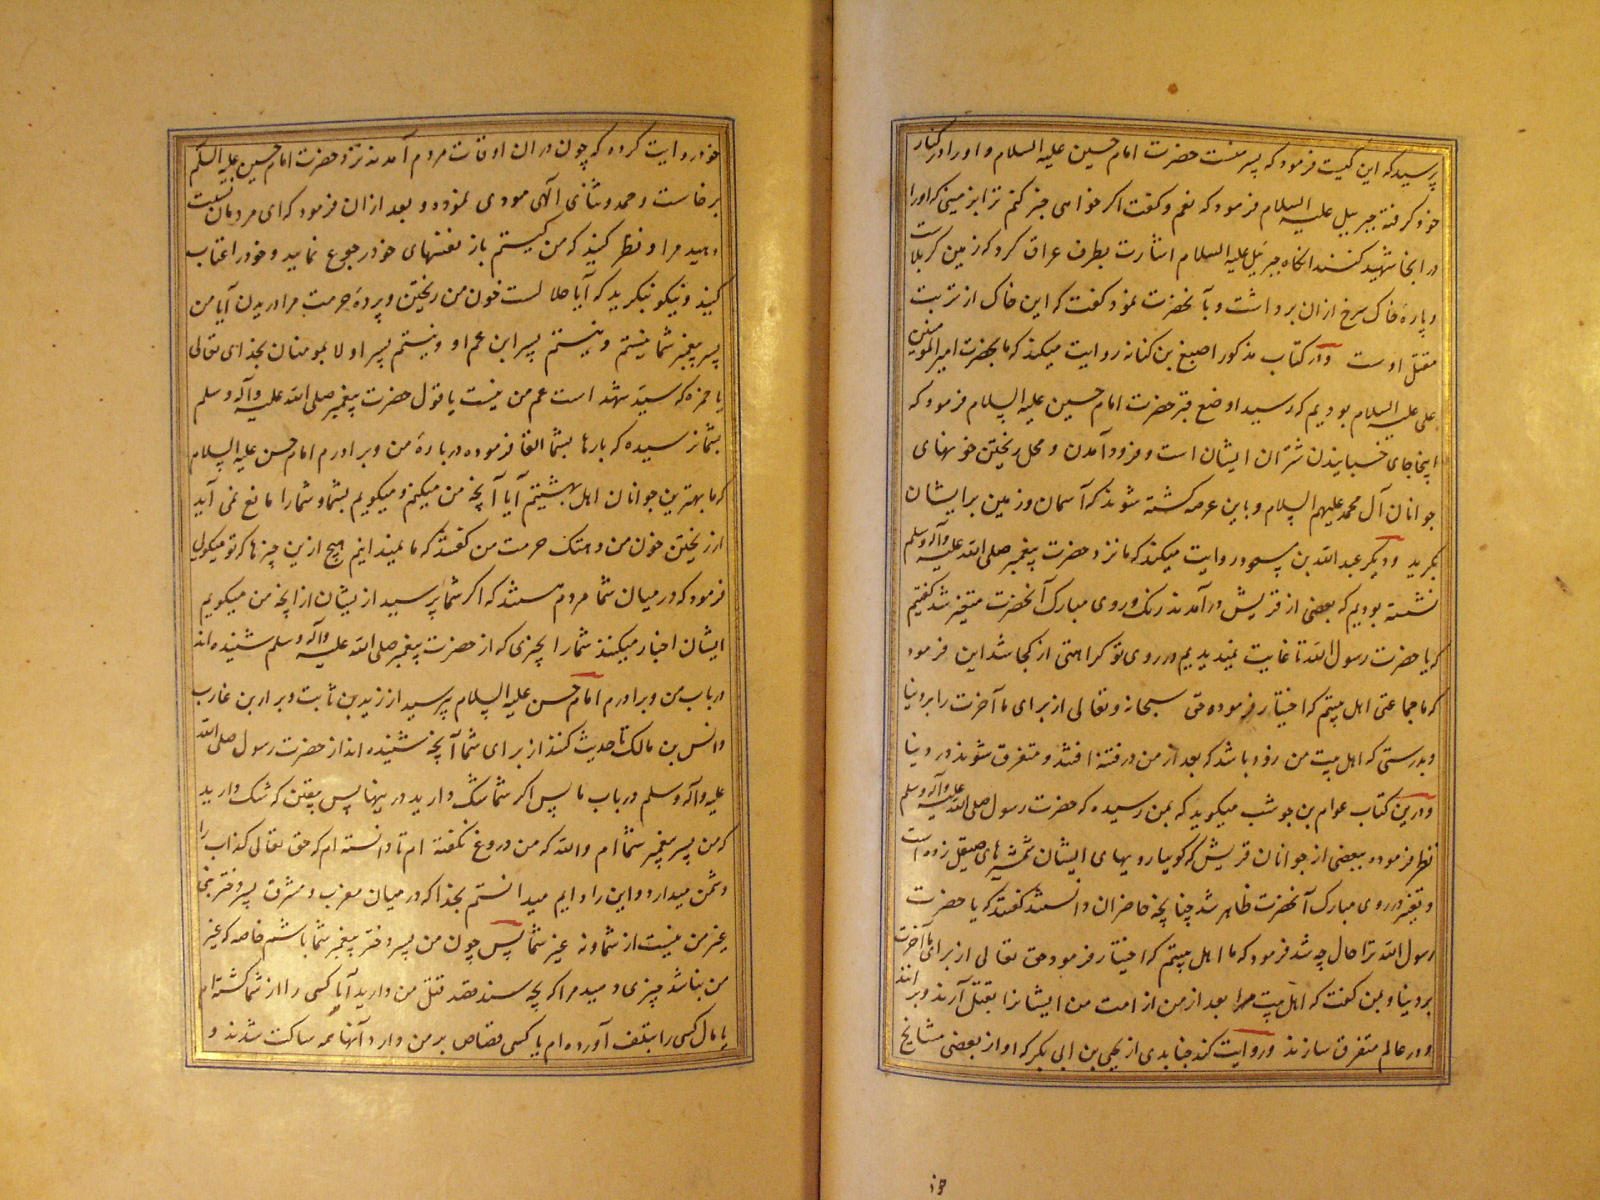 پرسید که این کیست فرمود که پسر منست حضرت امام حسین علیه السلام و او را در کنار
خود گرفته جبرییل علیه السلام فرمود که نعم و گفت اگر خواهی خبر کنم ترا بزمینی که او را
در انجا شهید کنند انکاه جبرئیل علیه السلام اشارت بطرف عراق کرد که زمین کربلاست
و پارهٔ خاک سرخ ازان برداشت و بآنحضرت نمود و گفت که این خاک از تربت
مقتل اوست و در کتاب مذکور اصبغ بن کنانه روایت میکند که ما بحضرت امیر المومنین
علی علیه السلام بودیم که رسید او ضع قبر حضرت امام حسین علیه السلام فرمود که
اینجا جای خسبانیدن شتران ایشان است و فرود آمدن و محل ریختن خونهای
جوانان آل محمد علیهم السلام و باین عرصه کشته شوند که آسمان و زمین بر ایشان
بگرید و دیگر عبد الله بن مسعود روایت میکند که ما نزد حضرت پیغمبر صلی الله علیه و آله وسلم
نشسته بودیم که بعضی از قریش در آمدند رنک و روی مبارک آنحضرت متغیر شد گفتیم
که یا حضرت رسول الله تا غایت نمیدیدیم در روی تو کراهتی از کجا شد این فرمود
که ما جماعتی اهل بیتیم که اختیار فرموده حق سبحانه و تعالی از برای ما آخرت را بر دنیا
و بدرستی که اهل بیت من زود باشد که بعد از من در فتنه افتند و متفرق شوند در دنیا
و درین کتاب عوام بن جوشب میکوید که بمن رسیده که حضرت رسول صلی الله علیه و آله وسلم
نظر فرمود ببعضی از جوانان قریش که کوییا رویهای ایشان شمشیرهای صیقل زده است
و تغیر در روی مبارک آنحضرت ظاهر شد چنانچه حاضران دانستند گفتند که یا حضرت
رسول الله ترا حال چه شد فرمود که ما اهل بیتیم که اختیار فرمود حق تعالی از برای ما آخرت
بر دنیا و بمن گفت که اهل بیت مرا بعد از من از امت من ایشانرا بقتل آرند و برانند
و در عالم متفرق سازند و روایت کند جنابدی از یحیی بن ابی بکر که او از بعضی مشایخ
خود
خود روایت کرده که چون در ان اوقات مردم آمدند نزد حضرت امام حسین علیه السلام
برخاست و حمد و ثنای آلهی مودی نموده و بعد از ان فرمود که ای مردمان نسبت
دهید مرا و نظر کنید که من کیستم باز بنفسهای خود رجوع نمایید و خود را عتاب
کنید و نیکو بنکرید که آیا حلالست خون من ریختن و پردهٔ حرمت مرا دریدن آیا من
پسر پیغمبر شما نیستم و نیستم پسر ابن عم او و نیستم پسر اولا بمومنان بخدای تعالی
یا حمزه که سید شهدا است عم من نیست یا قول حضرت پیغمبر صلی الله علیه و آله وسلم
بشما نرسیده که بارها بشما القا فرموده دربارهٔ من و برادرم امام حسن علیه السلام
که ما بهترین جوانان اهل بهشتیم آیا آنچه من میکنم و میکویم بشما و شما را مانع نمی آید
از ریختن خون من و هتک حرمت من گفتند که ما نمیدانیم هیچ ازین چیزها که تو میکویی
فرمود که در میان شما مردم هستند که اگر شما پرسید از یشان از انچه من میکویم
ایشان اخبار میکنند شما را بچیزی که از حضرت پیغمبر صلی الله علیه و آله وسلم شنیده اند
در باب من و برادرم امام حسن علیه السلام پرسید از زید بن ثابت و براء بن عازب
و انس بن مالک تا حدیث کنند از برای شما آنچه شنیده اند از حضرت رسول صلی الله
علیه و اله وسلم در باب ما پس اگر شما شک دارید در ینها پس یقین که شک دارید
که من پسر پیغمبر شما ام والله که من دروغ نگفته ام تا دانسته ام که حق تعالی کذاب را
دشمن میدارد و این را دایم میدانستم بخدا که در میان مغرب و مشرق پسر دختر نبی
غیر من نیست از شما و نه غیر شما پس چون من پسر دختر پیغمبر شما باشم خاصه که غیر
من نباشد چیزی دهید مرا که بچه سند قصد قتل من دارید آیا کسی را از شما کشته ام
یا مال کسی را بتلف آورده ام یا کسی قصاص بر من دارد آنها همه ساکت شدند و